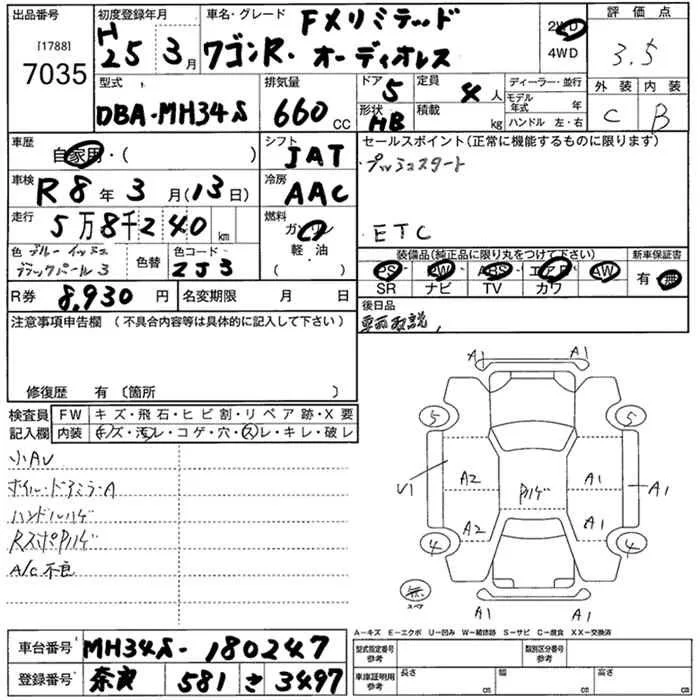 出品番号
[1788]
7035
初度登録年月
H
25 3月
車名・グレード
FXリミテッド
ワゴンR・オーディオレス
2WD
4WD
評価点
3.5
外装 内装
C B
型式
DBA-MH34S
排気量
660 CC
ドア
5
形状
HB
定員
4人
積載
kg
ディーラー・並行
モデル年式 年
ハンドル 左・右
車歴
自家用・( )
シフト
JAT
車検
R8年3月(13日)
冷房
AAC
走行
5万8千240 km
燃料
ガソリン
軽・油
( )
色
ブルーイッシュ
ブラックパール3
色替
色コード
ZJ3
R券
8,930円
名変期限 月 日
セールスポイント(正常に機能するものに限ります)
プッシュスタート
ETC
装備品(純正品に限り丸をつけて下さい)
PS・PW・ABS・エアB・AW
SR ナビ TV カワ
新車保証書
有・無
後日品
車両取説,
注意事項申告欄(不具合内容等は具体的に記入して下さい)
修復歴 有〔箇所 〕
検査員記入欄
FW キズ・飛石・ヒビ割・リペア跡・X要
内装 キズ・汚レ・コゲ・穴・スレ・キレ・破レ
小AU
ホイル・ドアミラーA
ハンドルハゲ
RスポPハゲ
A/C不良
A1 A1
5 5
U1 A2 Pハゲ A1 A1
A2 A1
4 4
無
スペア
A1 A1
A−キズ E−エクボ U−凹み W−補修跡 S−サビ C−腐食 XX−交換済
車台番号
MH34S-180247
登録番号
奈良 581 さ 3497
型式指定番号
参考
類別区分番号
参考
車庫証明用
参考
長さ cm
幅 cm
高さ cm